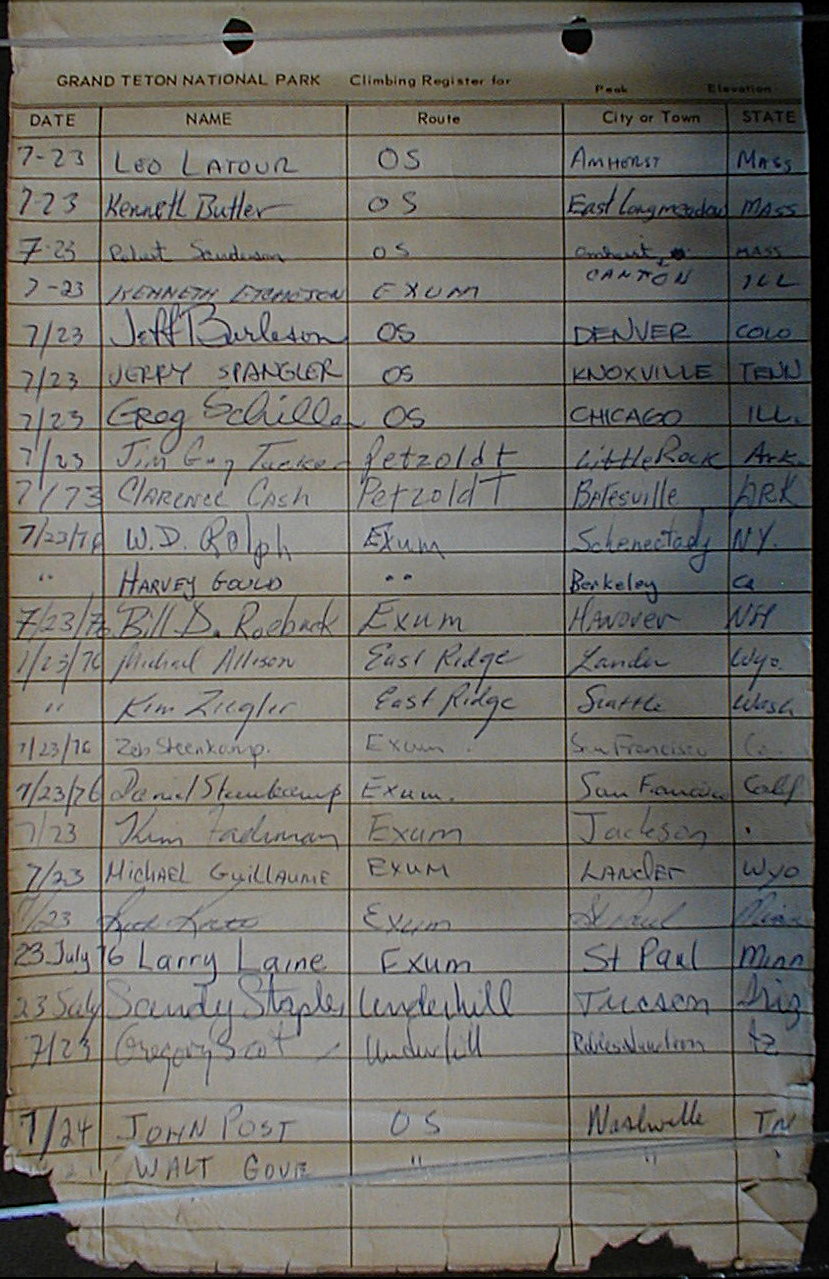 GRAND TETON NATIONAL PARK Climbing Register for Peak Elevation
DATE NAME Route City or Town STATE
7-23 LEO LATOUR OS AMHERST MASS
7-23 Kenneth Butler OS East Longmeadow MASS
7-23 Robert Sanderson OS Amherst MASS
7-23 KENNETH EXUM CANTON ILL
7/23 Jeff Burleson OS DENVER COLO
7/23 JERRY SPANGLER OS KNOXVILLE TENN
7/23 Greg Schiller OS CHICAGO ILL.
7/23 Jim Guy Tucker Petzoldt Little Rock Ark.
7/73 CLARENCE CASH PetzoldT Batesville ARK
7/23/76 W.D. Rolph Exum Schenectady NY.
" HARVEY GOULD " Berkeley Ca
7/23/76 Bill D. Roebuck Exum HANOVER NH
7/23/76 Michael Allison East Ridge Lander Wyo.
" Kim Ziegler East Ridge Seattle Wash
7/23/76 Zeb Steenkamp. Exum. San Francisco Ca.
7/23/76 Daniel Steenkamp Exum. San Francisco Calif
7/23 Kim Fadiman Exum Jackson .
7/23 MICHAEL GUILLAUME EXUM LANDER WYO
7/23 Exum St Paul Minn
23 July 76 Larry Laine Exum St Paul Minn
23 July Sandy Staples Underhill Tucson Ariz
7/23 Gregory Scot Underhill Robles Junction Az
7/24 JOHN POST OS Nashville TN
WALT GOVE " " "